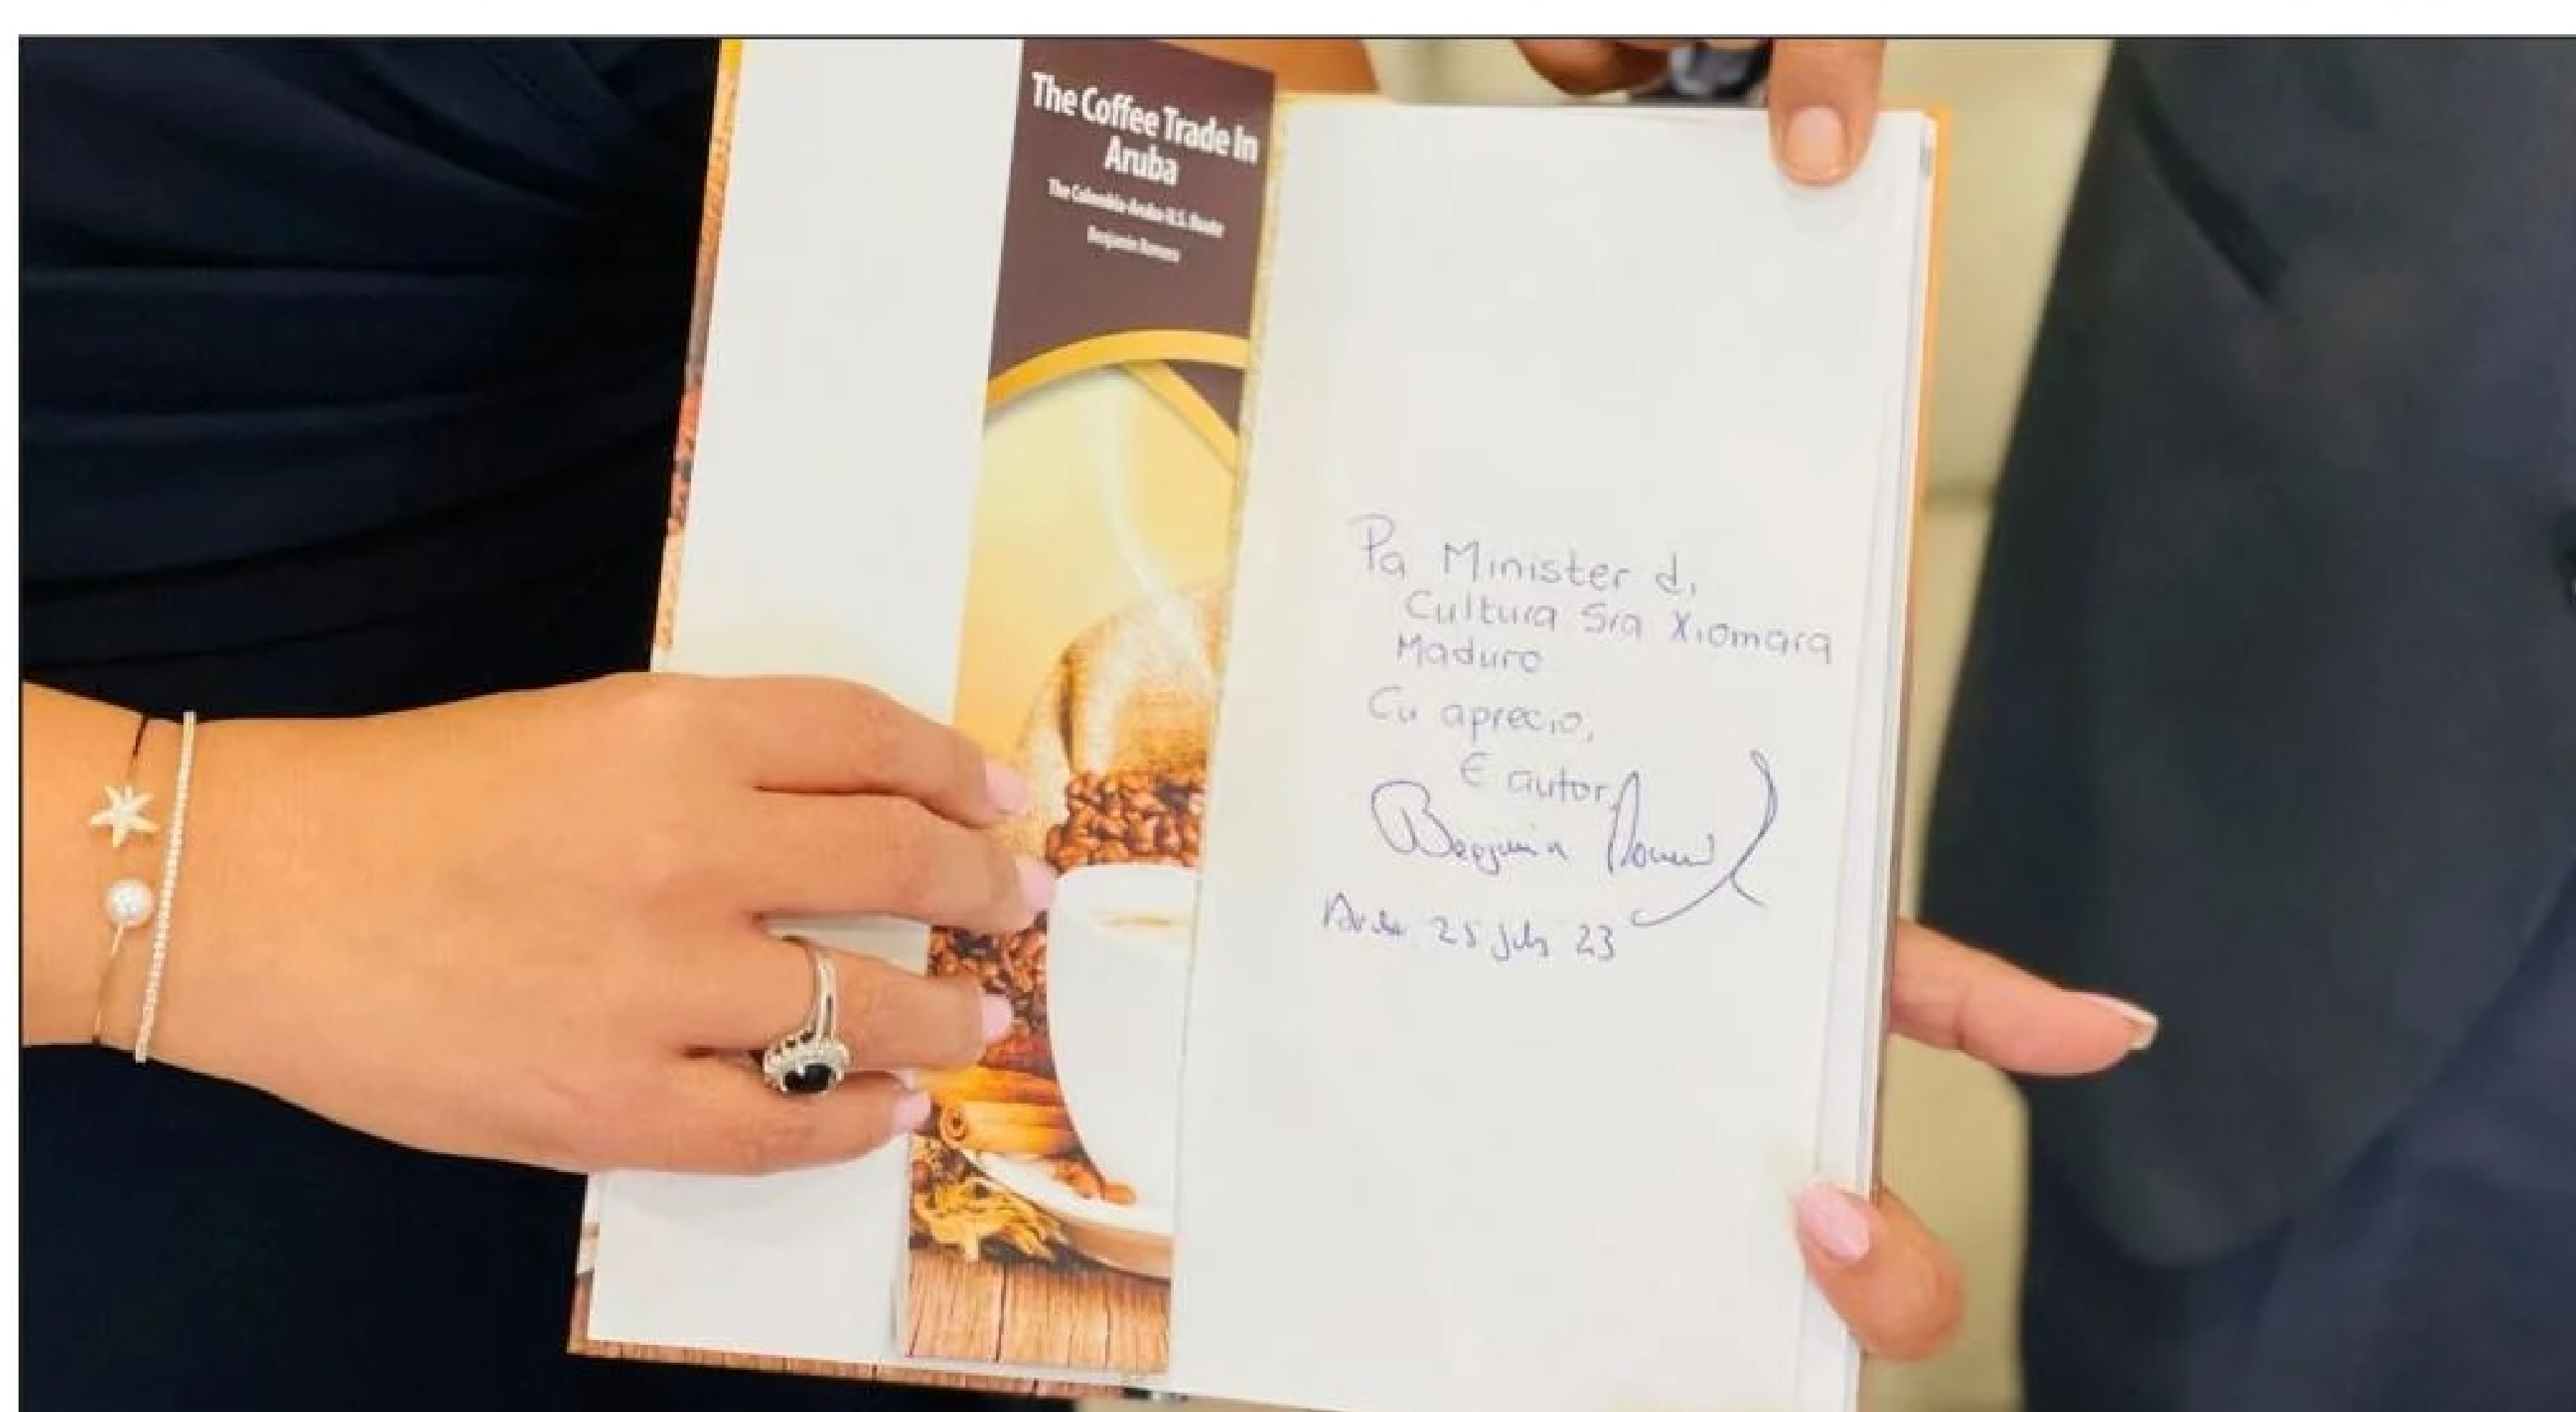 The Coffee Trade in
Aruba
The Colombia-Aruba-U.S. Route
Benjamin Romero
Pa Minister di
Cultura Sra Xiomara
Maduro
Cu aprecio,
E autor,
Benjamin Romero
Aruba 25 july 23